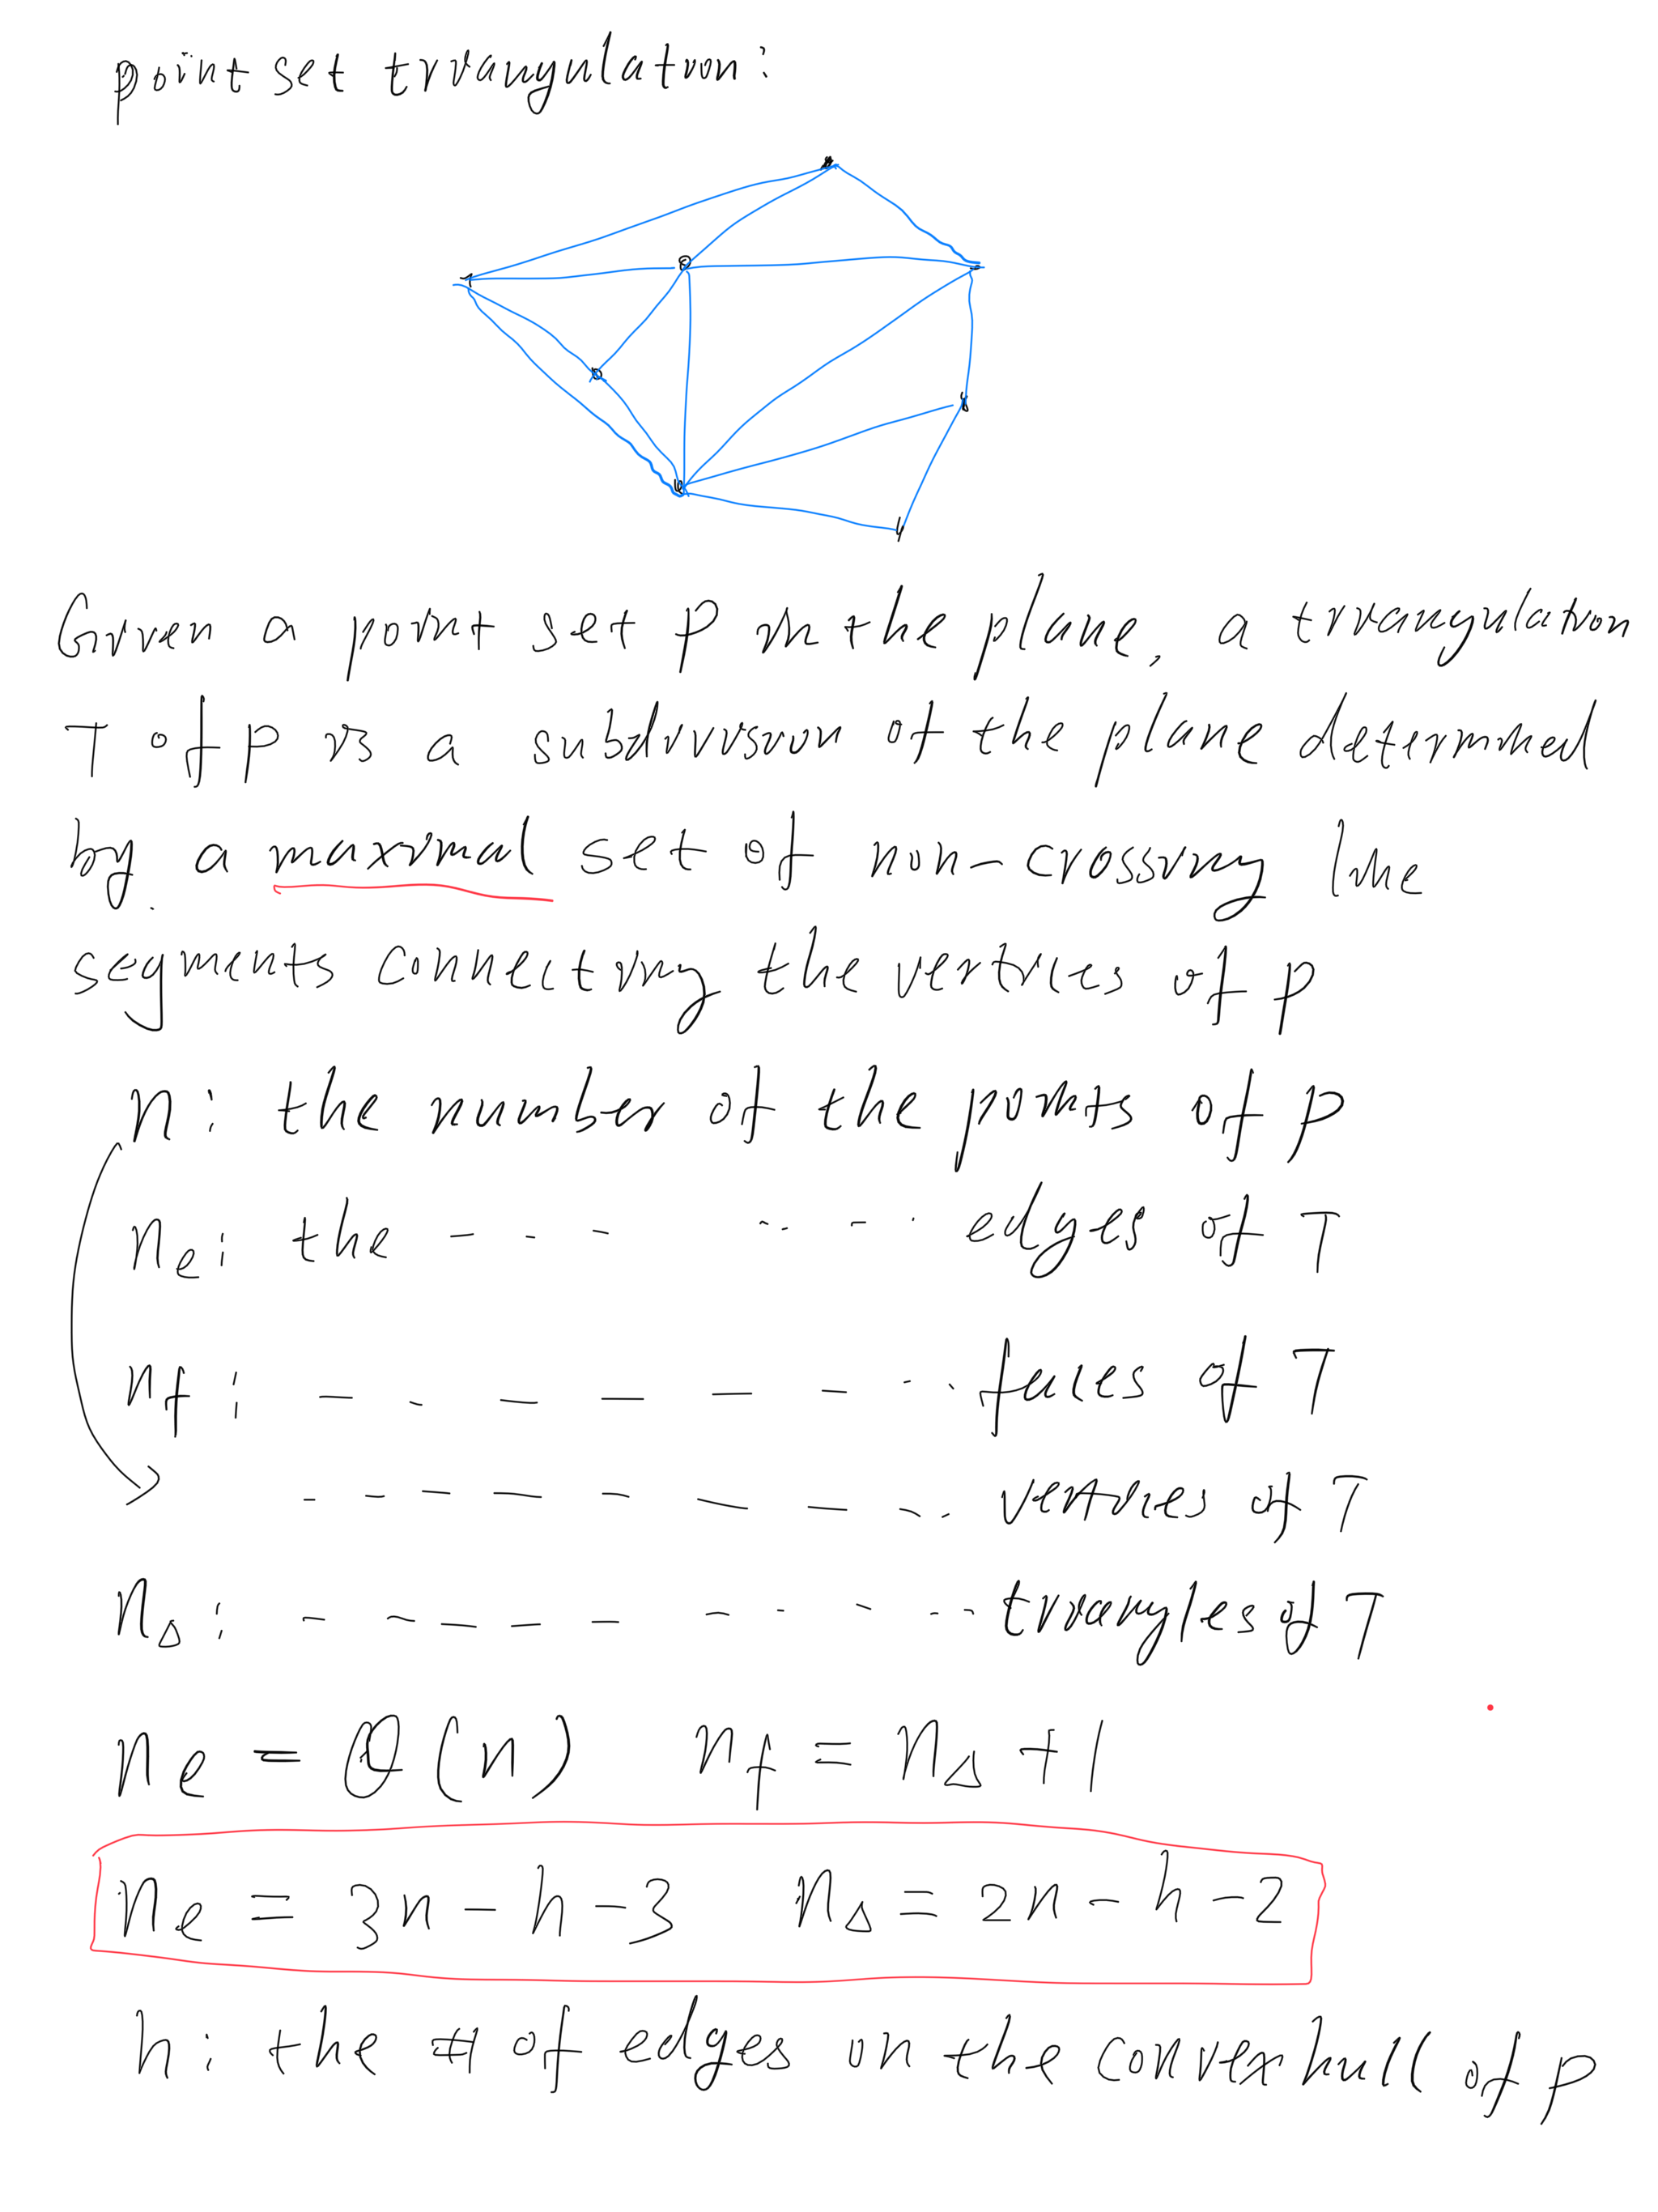 point set triangulation:
Given a point set P in the plane, a triangulation
T of P is a subdivision of the plane determined
by a maximal set of non-crossing line
segments connecting the vertices of P
n: the number of the points of P
ne: the - - - - - - - edges of T
nf: - - - - - - - - faces of T
- - - - - - - - - vertices of T
n△: - - - - - - - - - - triangles of T
ne = Θ(n) nf = n△ + 1
ne = 3n - h - 3 n△ = 2n - h - 2
h: the # of edges on the convex hull of P